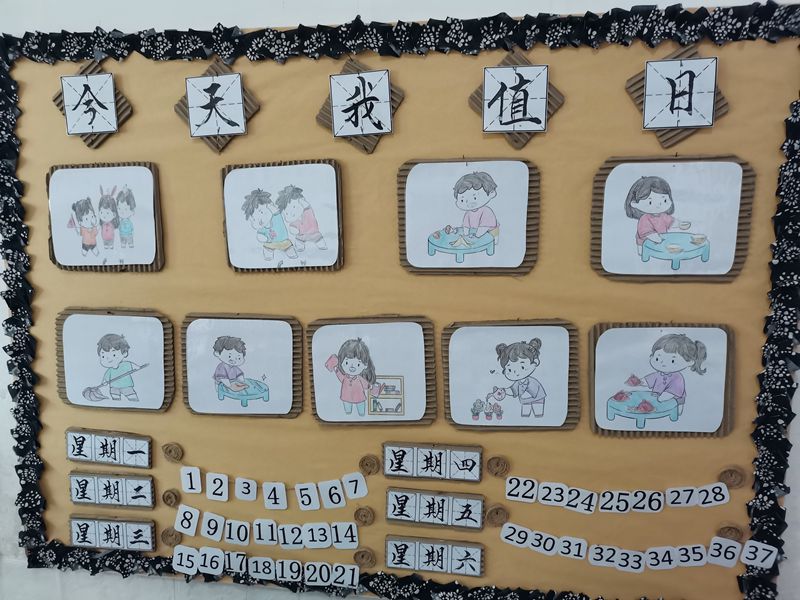 今天我值日
星期一
星期二
星期三
1 2 3 4 5 6 7
8 9 10 11 12 13 14
15 16 17 18 19 20 21
星期四
星期五
星期六
22 23 24 25 26 27 28
29 30 31 32 33 34 35 36 37